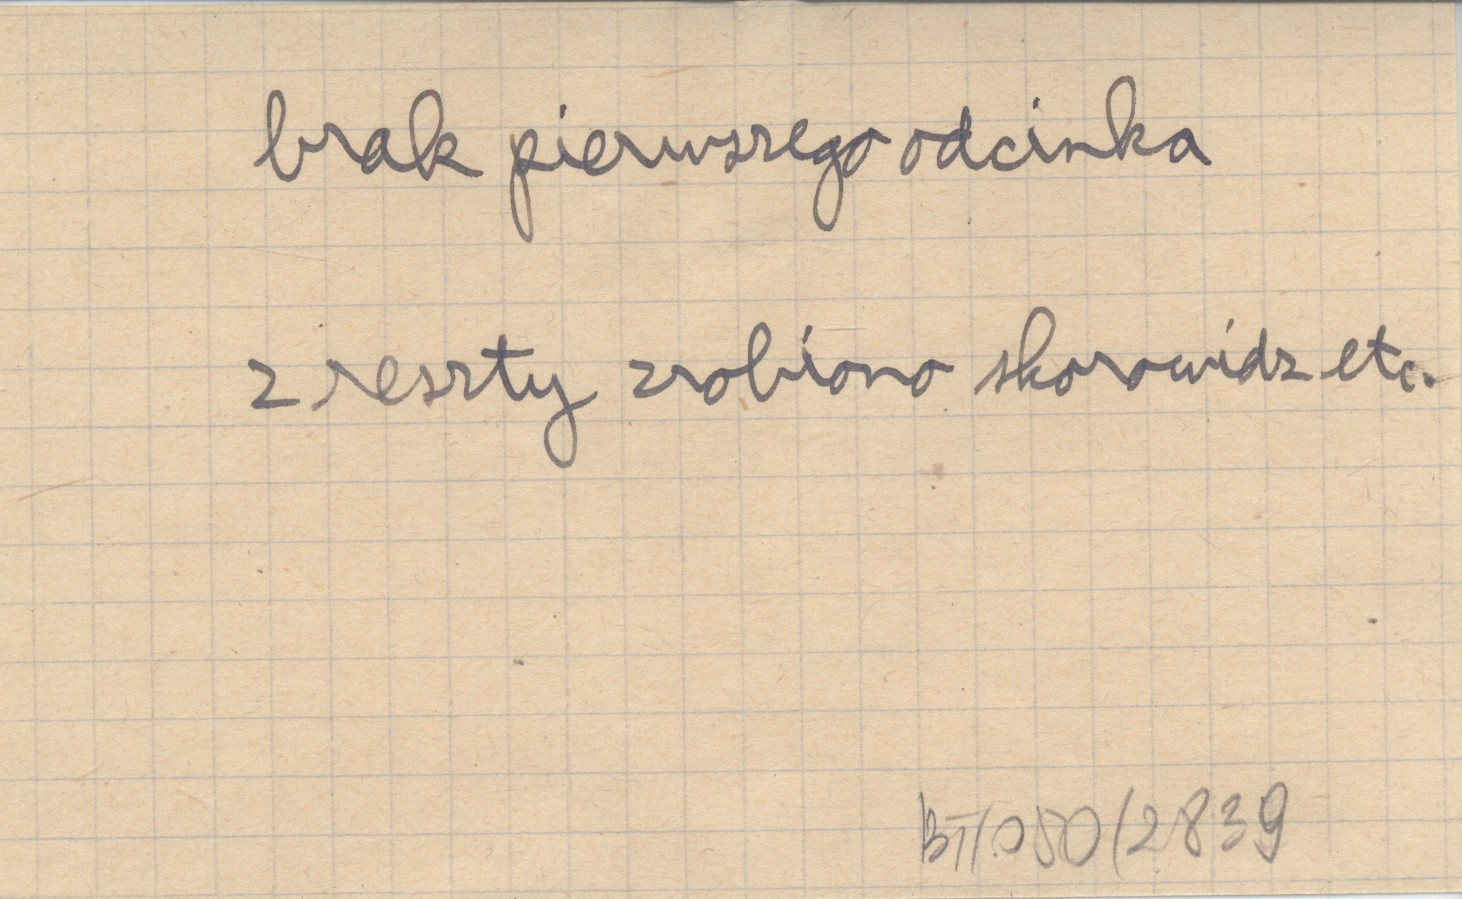 brak pierwszego odcinka
z reszty zrobiono skorowidz etc.
BT/050/2839